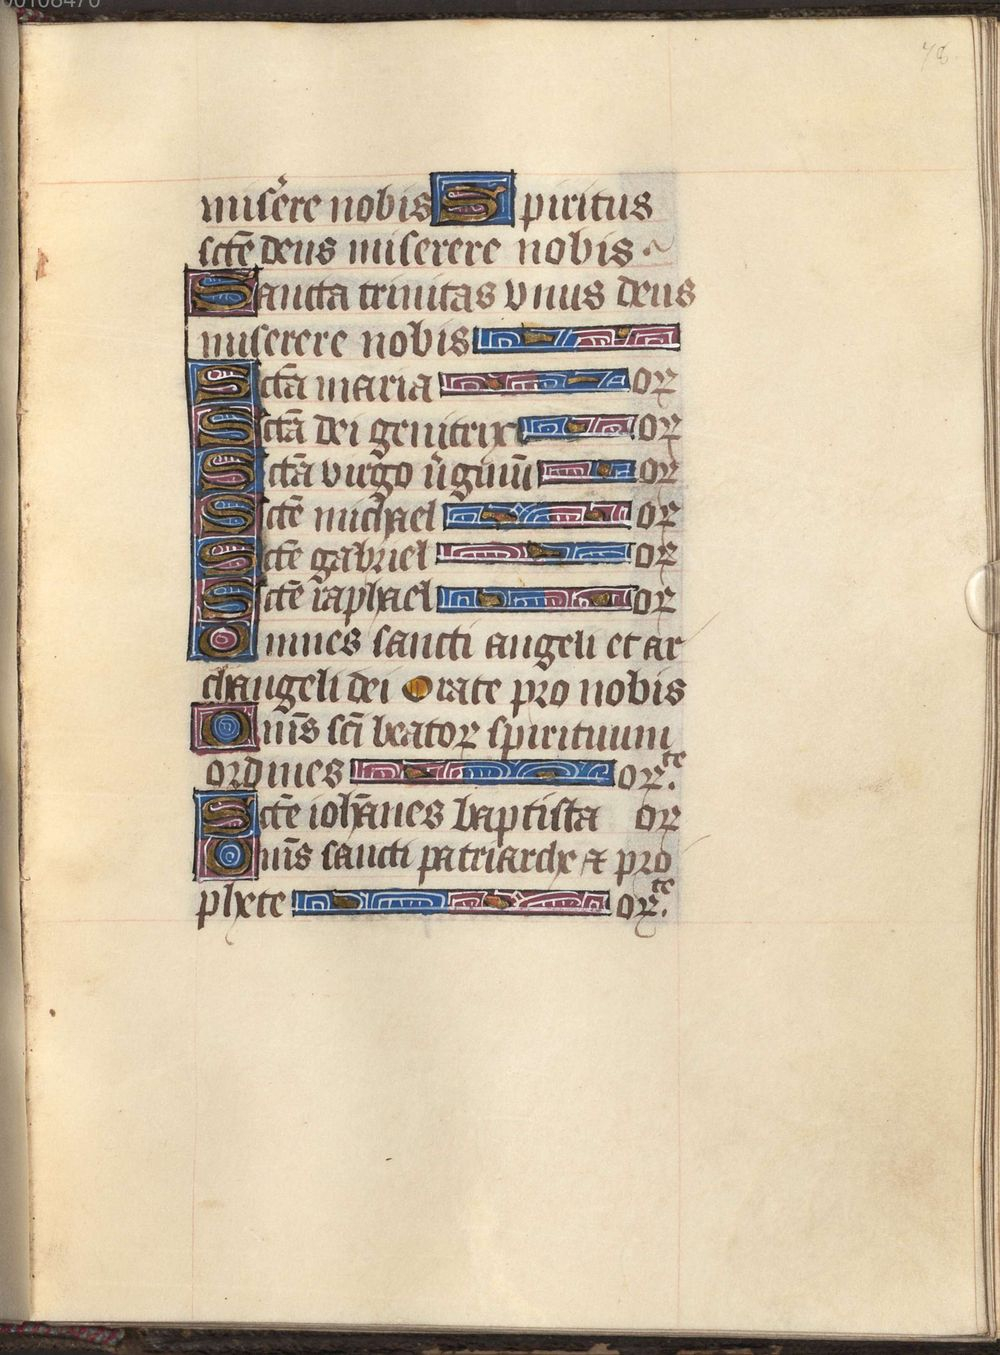 00108470
78
miserere nobis Spiritus
scte deus miserere nobis.
Sancta trinitas vnus deus
miserere nobis
Sctā maria orꝫ
Sctā dei genitrix or
Sctā virgo ūginū or
Sctē michael or
Sctē gabriel or
Sctē raphael or
Omnes sancti angeli et ar
changeli dei Orate pro nobis
Om̄s sc̄i beatoꝝ spirituum
ordines or.te
Sctē ioħānes baptista or
Om̄s sancti patriarche ⁊ pro
phete or.te